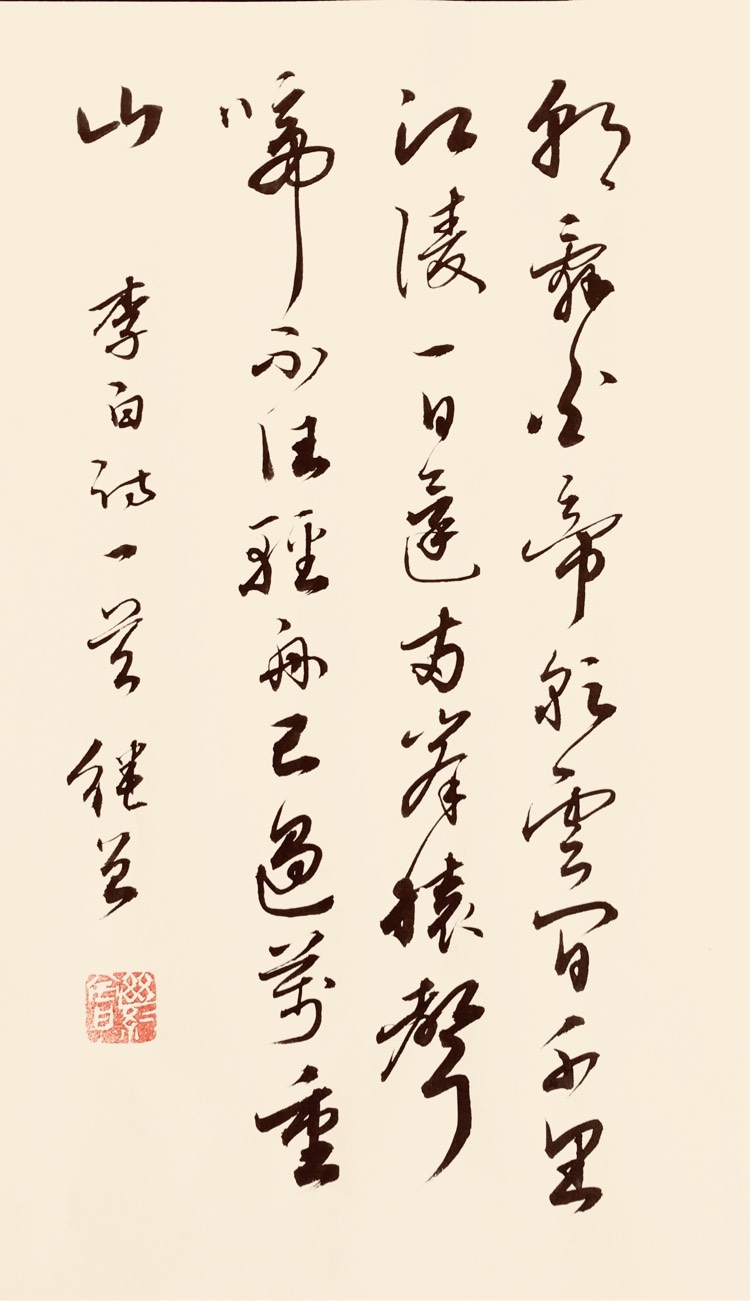 朝辭白帝彩雲間千里
江陵一日還两岸猿聲
啼不住輕舟已過萬重
山
李白诗一首 继